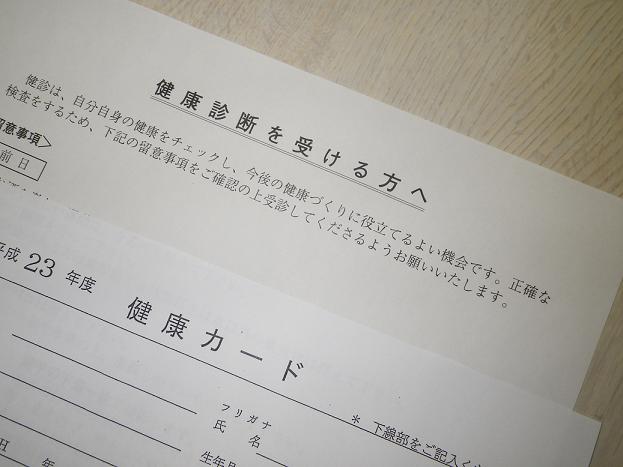 健康診断を受ける方へ
健診は、自分自身の健康をチェックし、今後の健康づくりに役立てるよい機会です。正確な
検査をするため、下記の留意事項をご確認の上受診してくださるようお願いいたします。
留意事項〉
前日
平成23年度
健康カード
＊下線部をご記入く
フリガナ
氏名
生年月
年